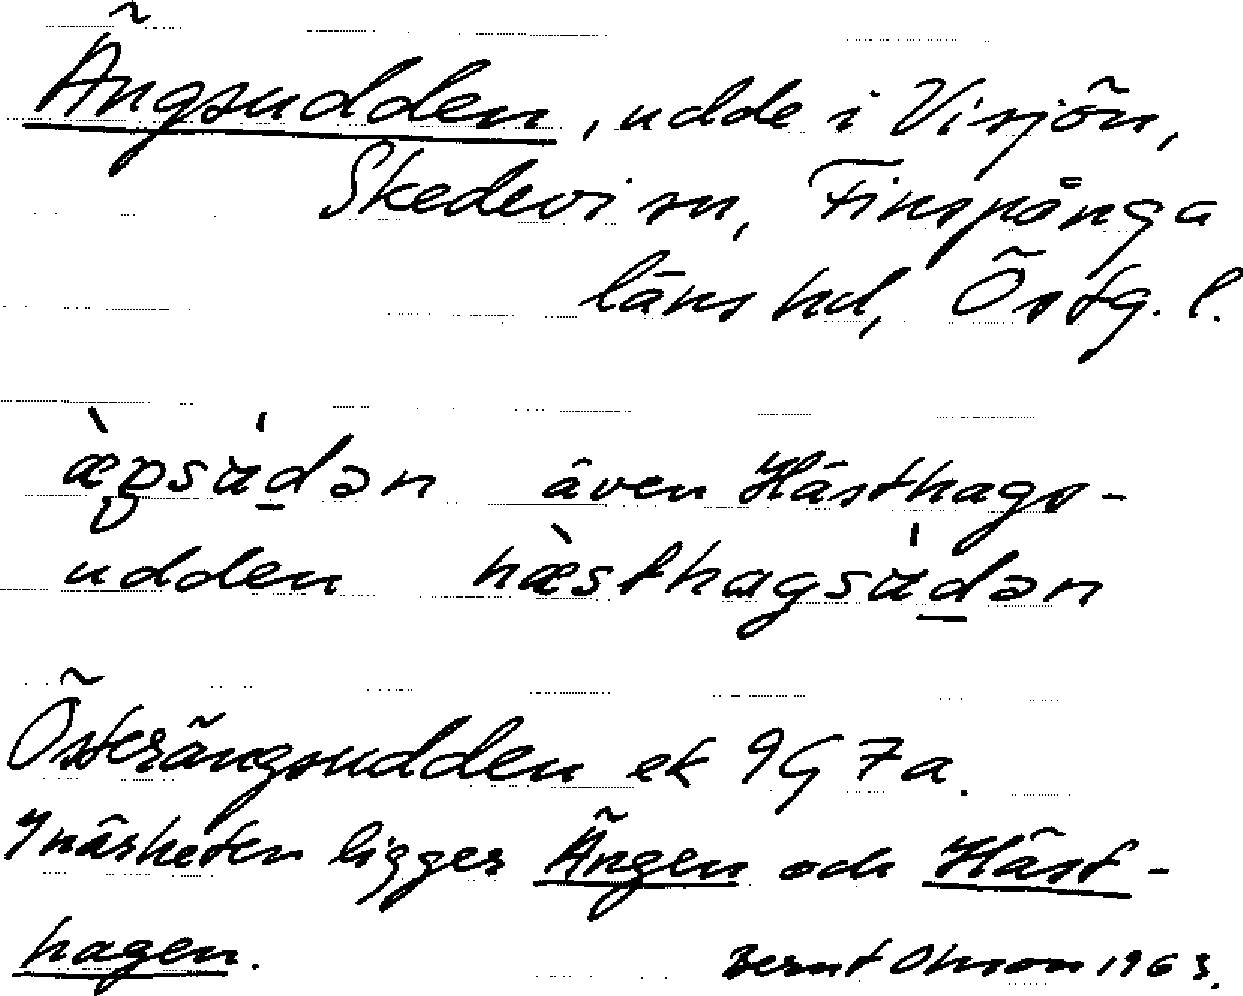 Ängsudden, udde i Visjön,
Skedevi sn, Finspånga
läns hd, Östg. l.
æ̀ŋsu̇́d̲ən även Hästhags-
udden hæ̀sthagsu̇́d̲ən
Österängsudden ek 9G 7a.
I närheten ligger Ängen och Häst-
hagen. Bernt Olsson 1963.